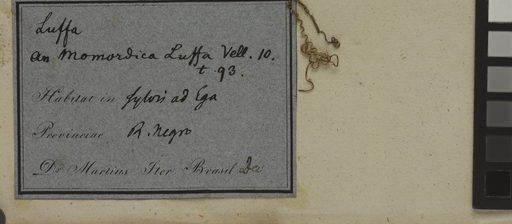 Luffa
an Momordica Luffa Vell. 10.
t. 93.
Habitat in sylvis ad Ega
Provinciae R. Negro
Dr Martius Iter Brasil